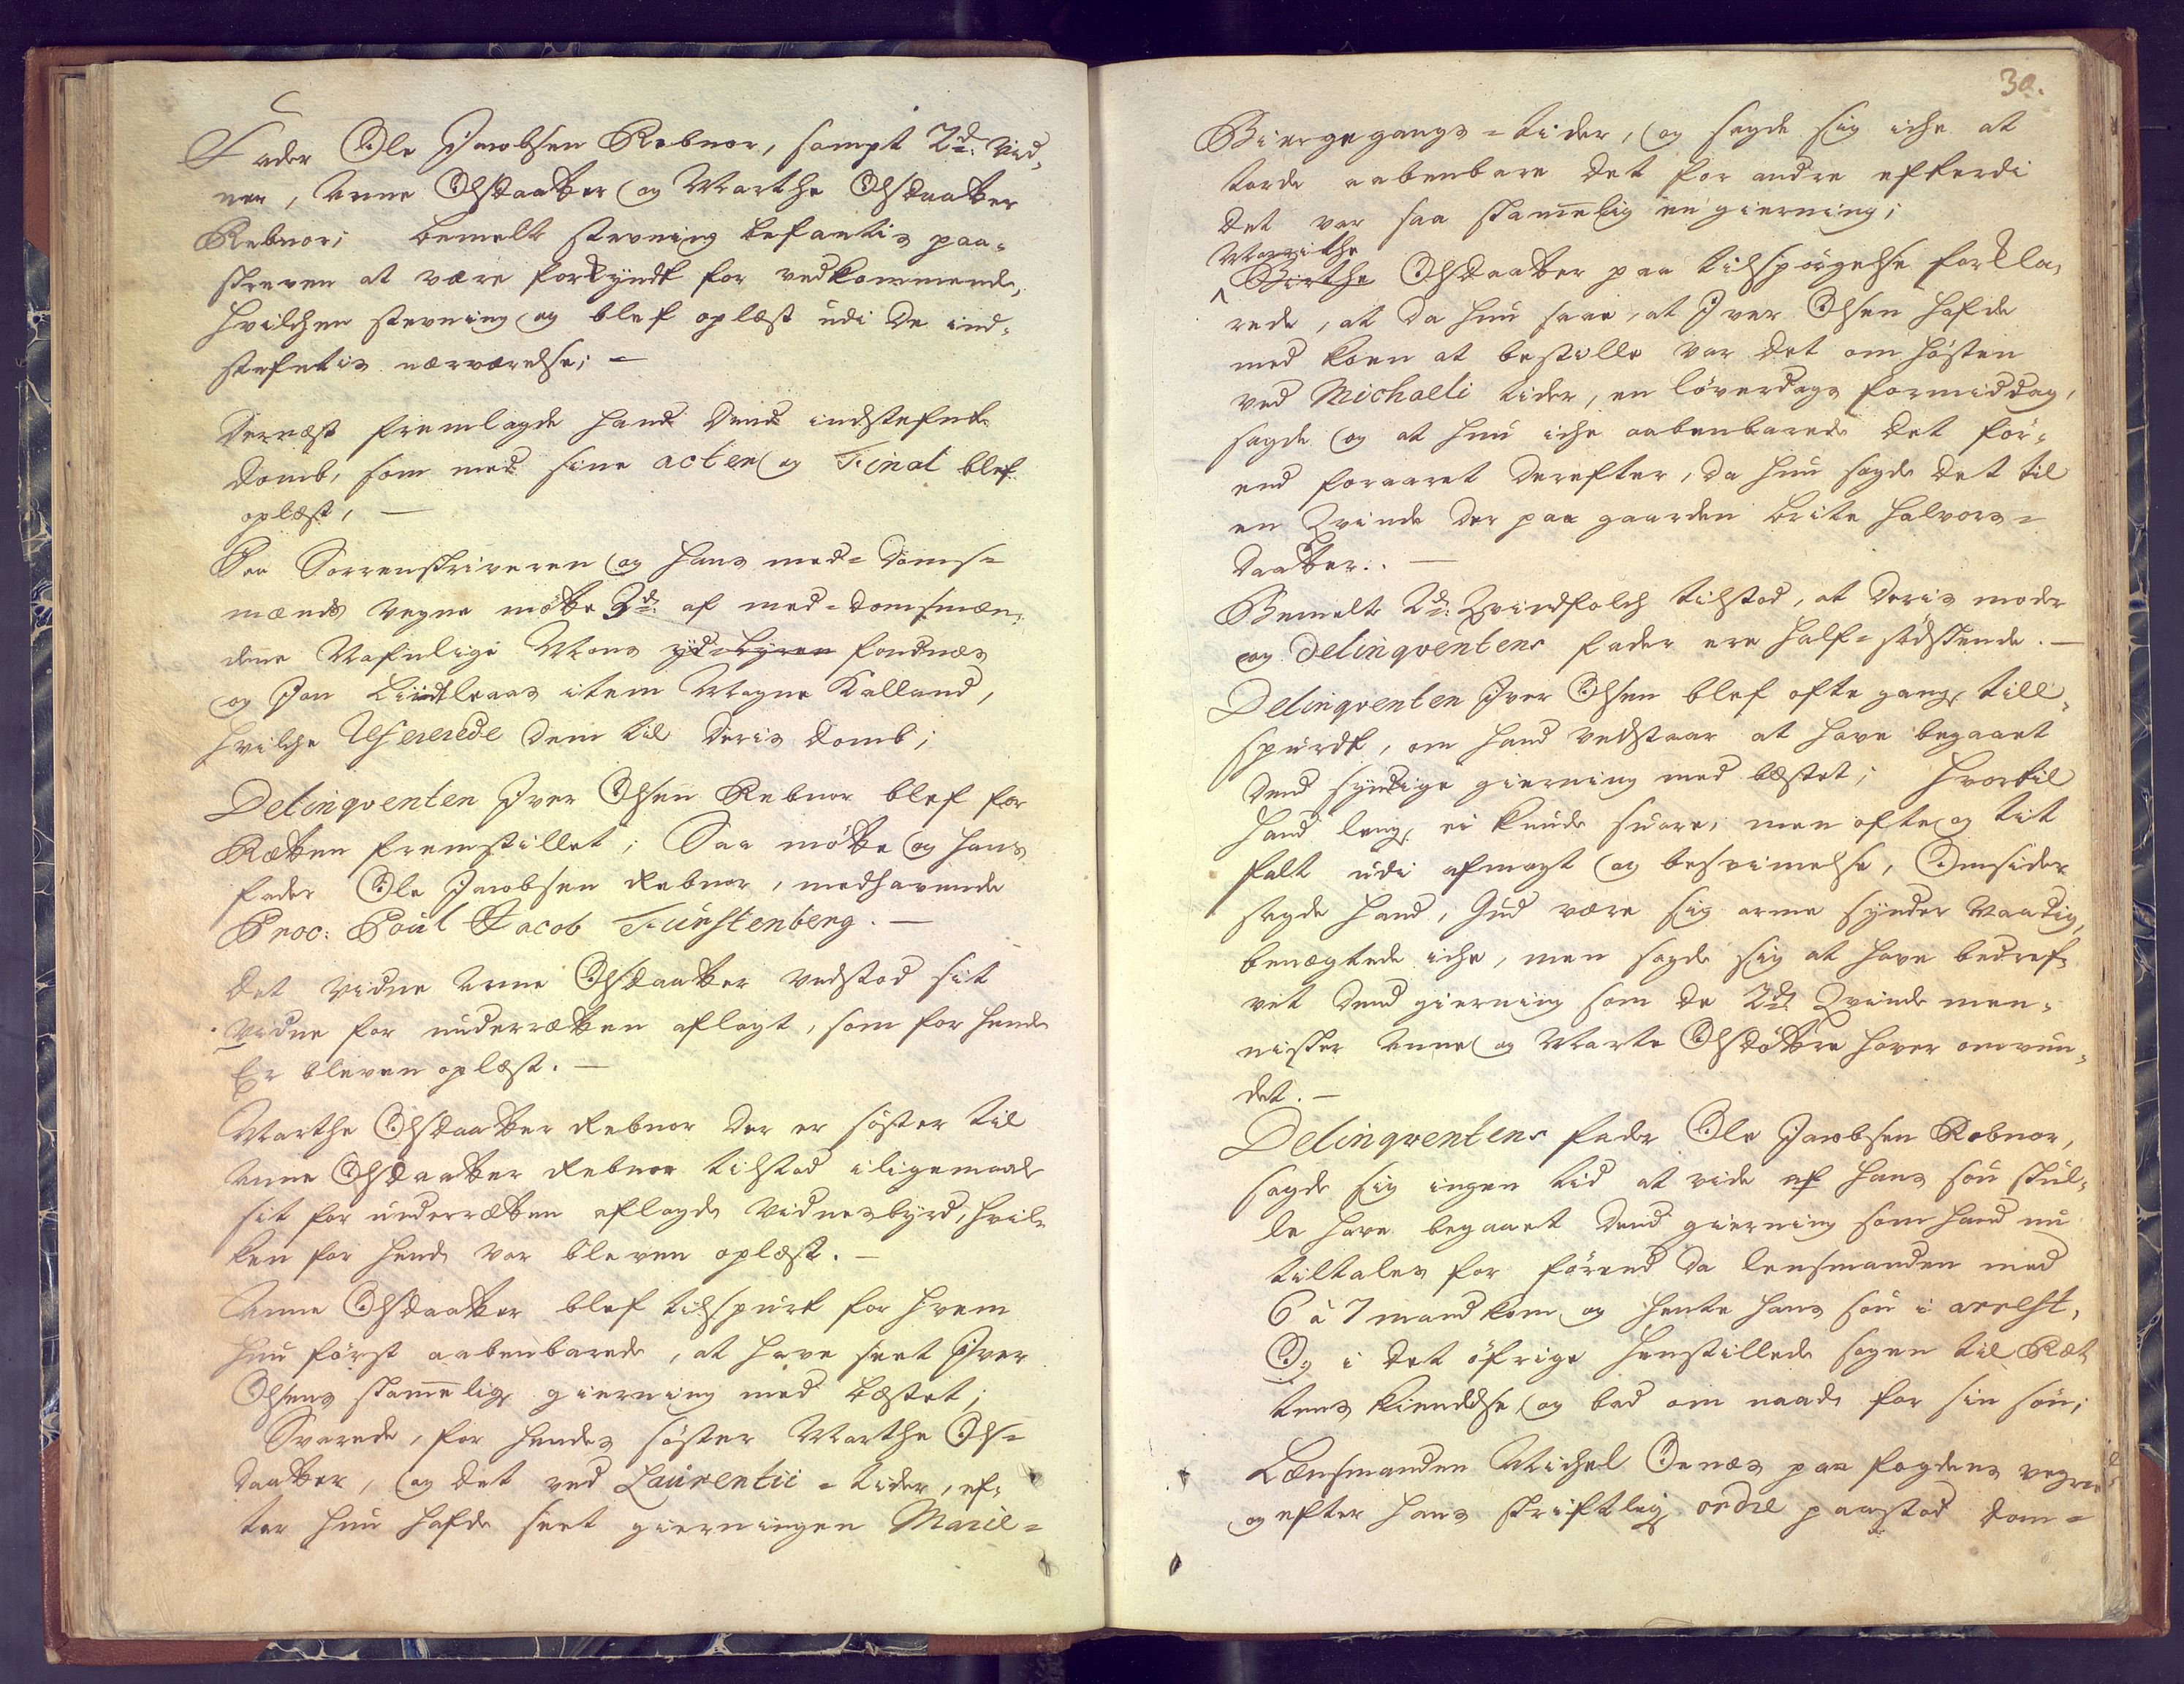 Fader Ole Jacobsen Rebnor, sampt 2de Vid-
ner, Anne Olsdaatter og Marthe Olsdaatter
Rebnor; bemelte stevning befantis paa-
skreven at være forkyndt for vedkommende,
hvilchen stevning og blef oplæst udi de ind-
stefntis nærværelse; -
Dernæst fremlagde hand dend indstefnte
domb, som med sine acter og Final blef
oplæst, -
Paa Sorrenskriveren og hans med-doms-
mænds vegne møtte 3de af med-domsmæn-
dene Nafnlige Mons fondnæs
og Jon Lindeaas item Magne Kalland,
hvilche refererede dem til deris domb;
Delinqventen Iver Olsen Rebnor blef for
Rætten fremstillet; Saa møtte og hans
fader Ole Jacobsen Rebnor, medhavende
Proc: Poul Jacob Fürstenberg. -
Det vidne Anne Olsdaatter vedstod sit
vidne for underrætten aflagt, som for hende
Er bleven oplæst. -
Marthe Olsdaatter Rebnor der er søster til
Anne Olsdaatter Rebnor tilstod iligemaade
sit for underrætten aflagde vidnesbyrd, hvil-
ken for hende var bleven oplæst. -
Anne Olsdaatter blef tilspurt for hvem
hun først aabenbarede, at have seet Iver
Olsens skammelige gierning med bæstet;
Svarede, for hendes søster Marthe Ols-
daatter, og det ved Laurentii-tider, ef-
ter hun hafde seet gierningen
30.
Biergegangs-tider, og sagde sig iche at
torde aabenbare det for andre efterdi
det var saa skammelig en gierning;
Marithe
Birthe Olsdaatter paa tilspørgelse forkla-
rede, at da hun saae, at Iver Olsen hafde
med koen at bestille var det om høsten
ved Michaeli tider, en løverdags formiddag,
sagde og at hun iche aabenbarede det før-
end foraaret derefter, da hun sagde det til
en Qvinde der paa gaarden Brite Halvors-
daatter. -
Bemelte 2de Qvindfolch tilstod, at deris moder
og Delinqventens fader ere half-sødskende. -
Delinqventen Iver Olsen blef ofte gange till-
spurdt, om hand vedstaar at have begaaet
dend syndige gierning med bæstet; hvortil
hand lenge ei kunde svare, men ofte og tit
falt udi afmagt og besvimelse, Omsider
sagde hand, Gud være sig arme synder Naadig,
benægtede iche, men sagde sig at have bedref-
vet dend gierning som de 2de Qvinde men-
nisker Anne og Marte Olsdøttre haver omvun-
det. -
Delinqventens fader Ole Jacobsen Rebnor,
sagde sig ingen tid at vide af hans søn skul-
le have begaaet dend gierning som hand nu
tiltales for førend da lensmanden med
6 à 7 mand kom og hente hans søn i arrest,
Og i det øfrige henstillede sagen til Ræt-
tens kiendelse, og bad om naade for sin søn;
Lænsmanden Michel Oenæs paa fogdens vegne
og efter hans skriftlig ordre paastod dom-